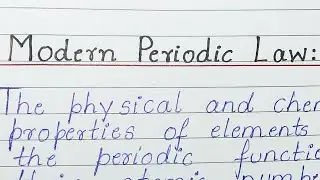 Modern Periodic Law:
The physical and chem
properties of elements
the periodic functio
their atomic number